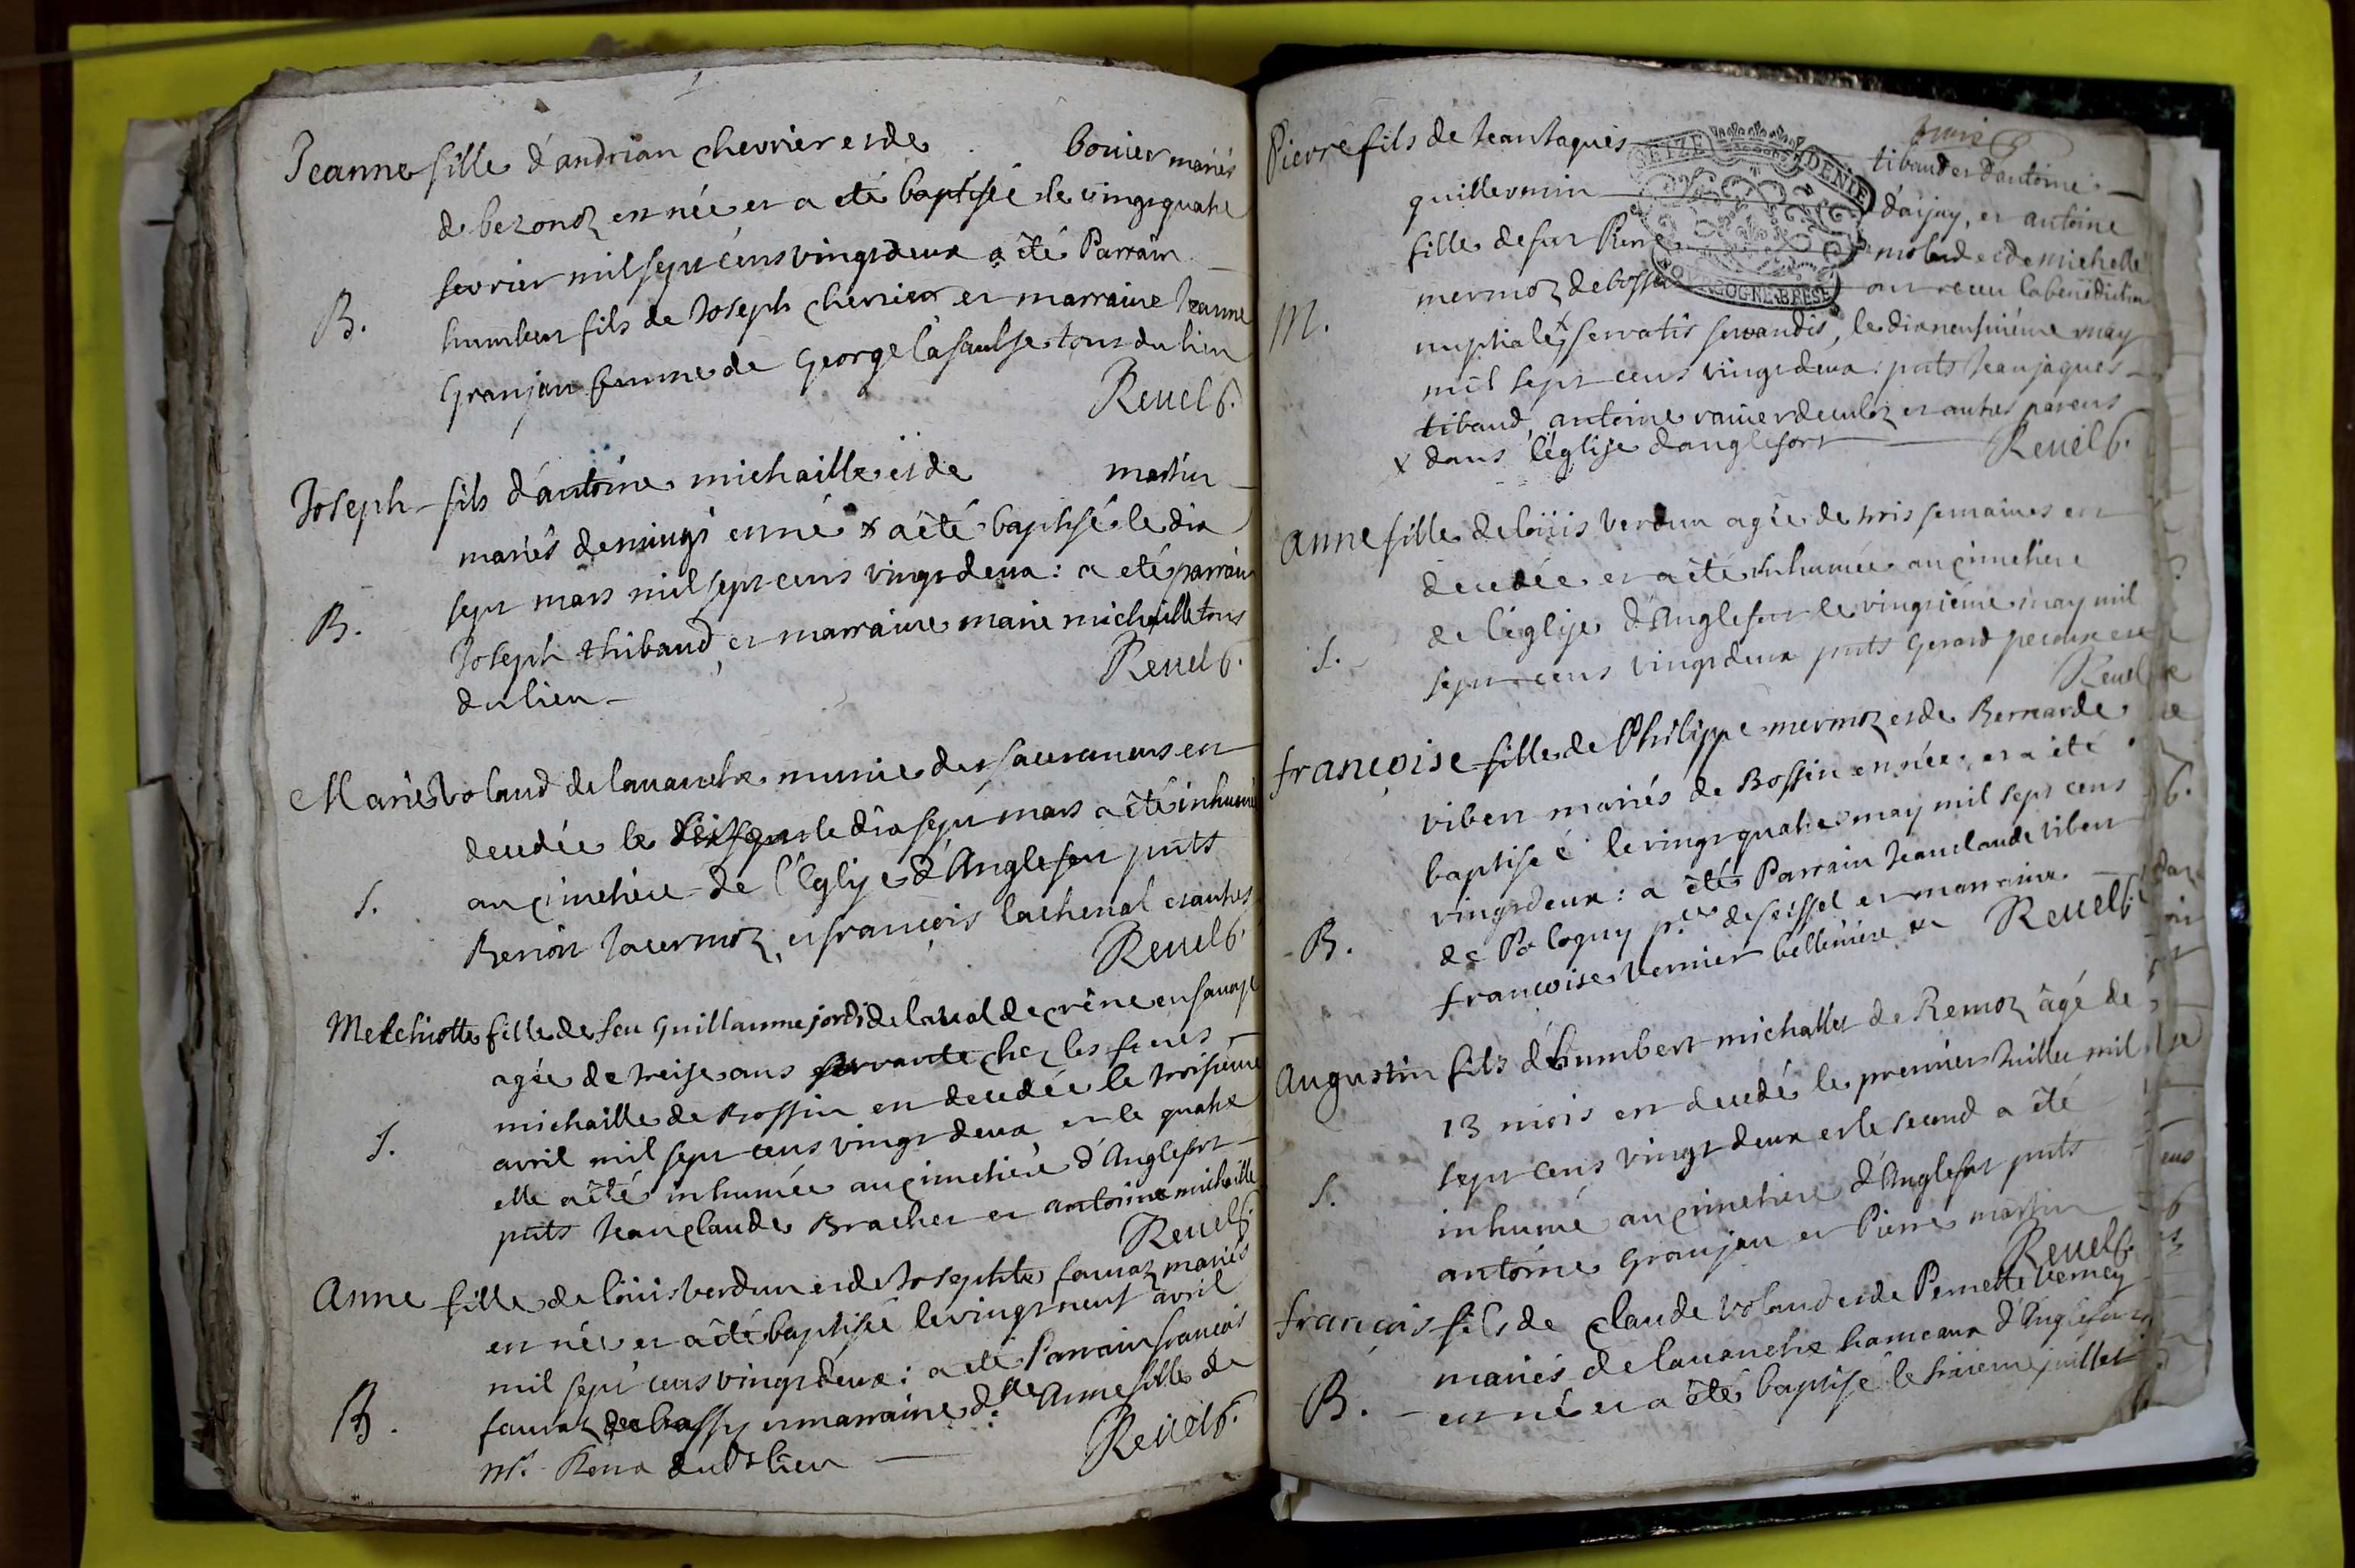 Jeanne fille d'andrian chevrier et de bouier mariés
de bezonoz est née et a été baptisée le vingt quatre
fevrier mil sept cens vingt deux a été Parrain
B.
humbert fils de Joseph chevrier et marraine Jeanne
Granjan femme de George lasausse tous du lieu
Revel C.
Joseph fils d'antoine michaille et de martin
mariés de mingi est né & a été baptisé le dix
sept mars mil sept cens vingt deux : a été parrain
B.
Joseph thibaud, et marraine marie michaille tous
du lieu
Revel C.
Marie Voland de lavanche munie des sacremens est
decedée le le dix sept mars a été inhumée
au cimetiere de l'Eglise d'Anglefort pnts
S.
Benoit Jacermoz, et françois lachenal et autres
Revel C.
Melchiotte fille de feu Guillaume jordi de la val de crêne en savoye
agée de treise ans servante chez les freres
michaille de Bossin est decedée le troisieme
S.
avril mil sept cens vingt deux et le quatre
elle a été inhumée au cimetiere d'Anglefort
pnts Jean claude Bracher et antoine michaille
Revel C.
Anne fille de loüis verdun et de Josephte favraz mariés
est née et a été baptisée le vingt neuf avril
mil sept cens vingt deux : a été Parrain françois
B.
favraz de et marraine d.lle Anne fille de
mr. du lieu
Revel C.
Pierre fils de Jean Jaques tibaud et d'antoine
guillermin d'arjay, et antoine
fille de fut Pierre molard et de michelle
mermoz de bossin ont receu la benediction
M.
nuptiale x servatis servandis, le dix neufvieme may
mil sept cens vingt deux : pnts Jean jaques
tibaud, antoine et autres parens
x dans l'église d'anglefort
Revel C.
SEIZE DENIE
BOURGOGNE BRESSE
Anne fille de loüis Verdun agée de trois semaines est
decedée et a été inhumée au cimetiere
de l'église d'Anglefort le vingtième may mil
S.
sept cens vingt deux pnts Gerard
Revel
françoise fille de Philippe mermoz et de Bernarde
vibert mariés de Bossin est née, et a été
baptisée le vingt quatre may mil sept cens
vingt deux : a été Parrain Jean claude vibert
B.
de Pologny de seissel et marraine
françoise vernier
Revel C.
Augustin fils d'humbert michallet de Remoz âgé de
13 mois est decedé le premier Juillet mil
sept cens vingt deux et le second a été
S.
inhumé au cimetiere d'Anglefort pnts
antoine Granjan et Pierre martin
Revel C.
françois fils de claude Voland et de Pernette Verney
mariés de lavanche hameaux d'Anglefort
B.
est né et a été baptisé le juillet